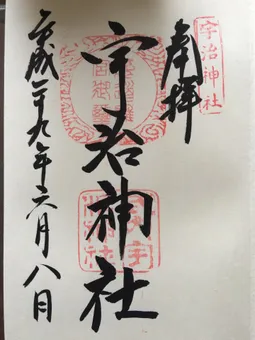 奉拝
宇治神社
宇治神社
平成二十九年六月八日